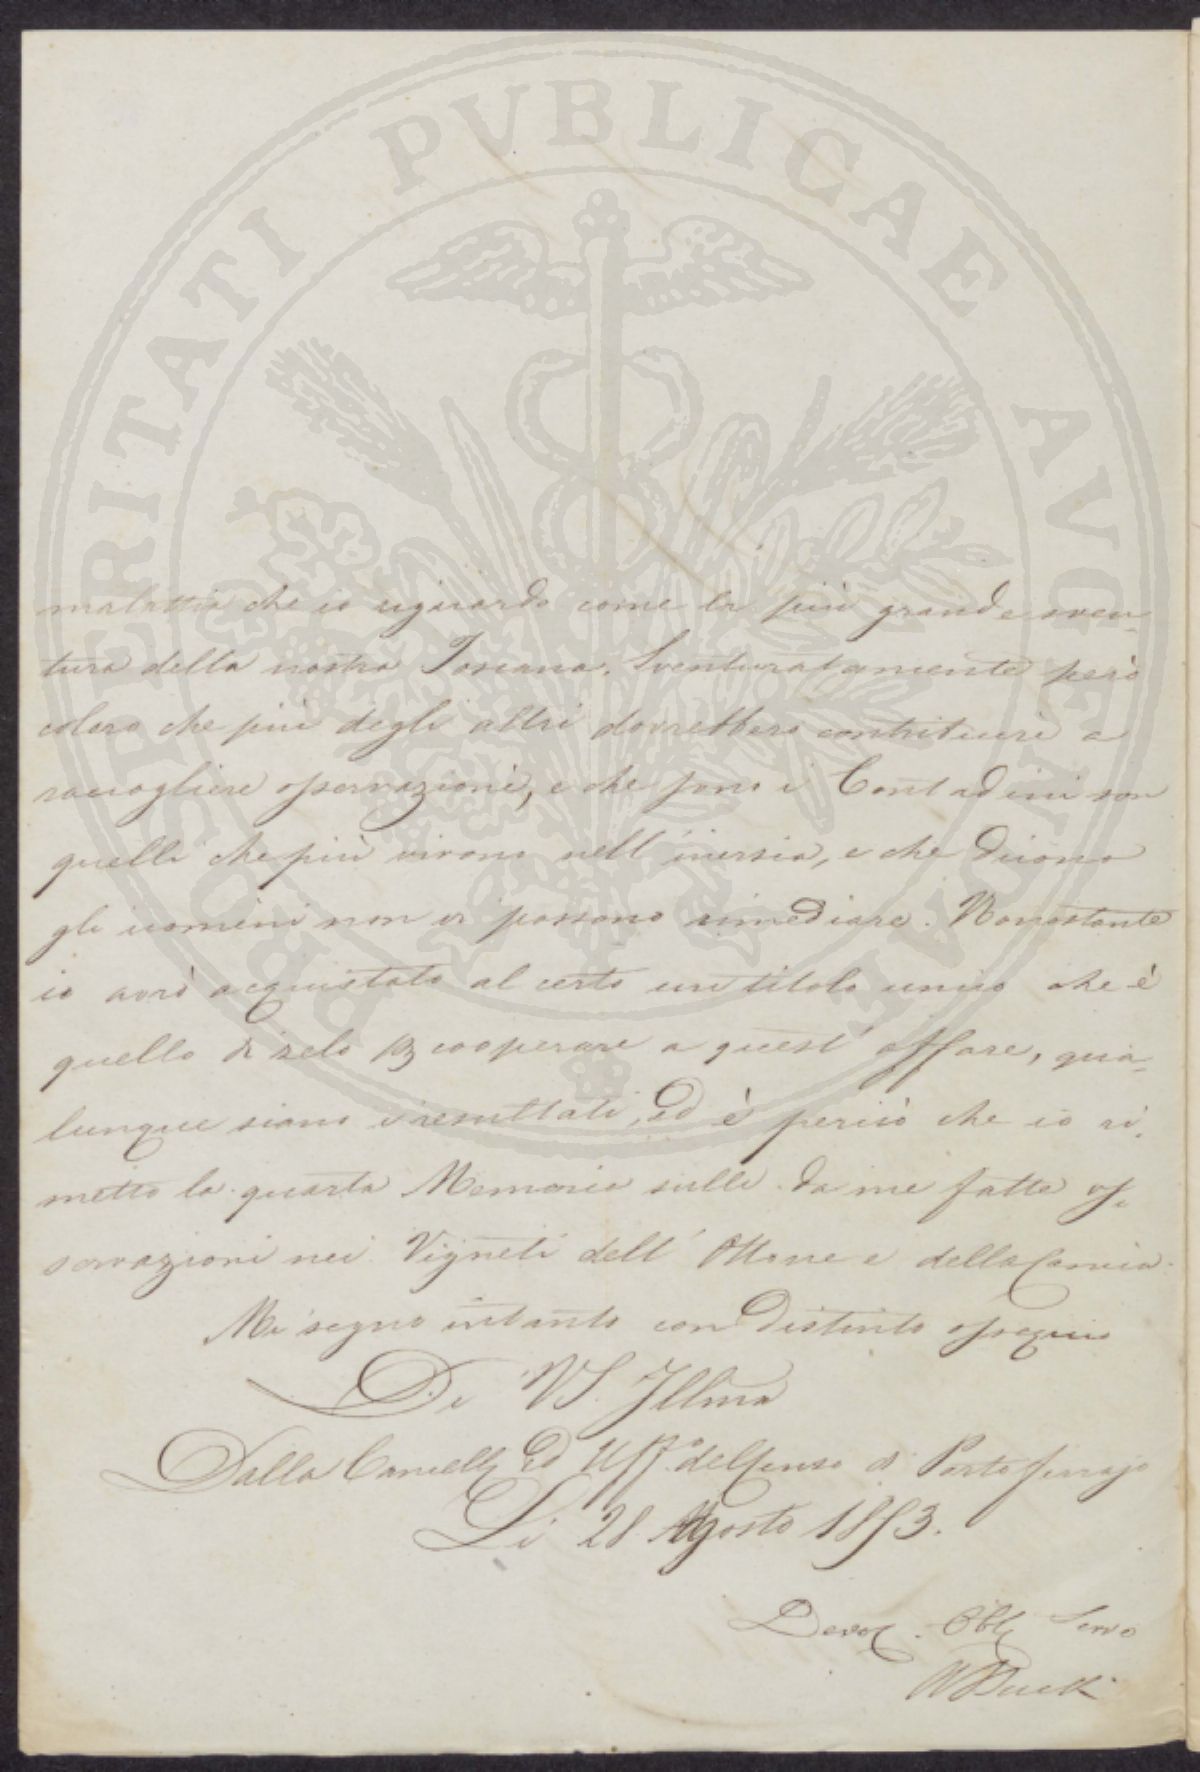 PROSPERITATI PVBLICAE AVGENDAE
malattia che io riguardo come la più grande sven-
tura della nostra Toscana. Sventuratamente però
coloro che più degli altri dovrebbero contribuire a
raccogliere osservazioni, e che sono i Contadini son
quelli che più vivono nell'inerzia, e che dicono
gli uomini non ci possono rimediare. Nonostante
io avrò acquistato al certo un titolo unico che è
quello di zelo cooperare a quest'affare, qua-
lunque siano i resultati, ed è perciò che io ri-
metto la quarta Memoria sulle da me fatte os-
servazioni nei Vigneti dell'Ottone e della
Mi segno intanto con distinto ossequio
Di VS. Illma
Dalla Cancell ed Uff. del Censo di Portoferrajo
Li 28 Agosto 1853.
Devot. Obb Servo